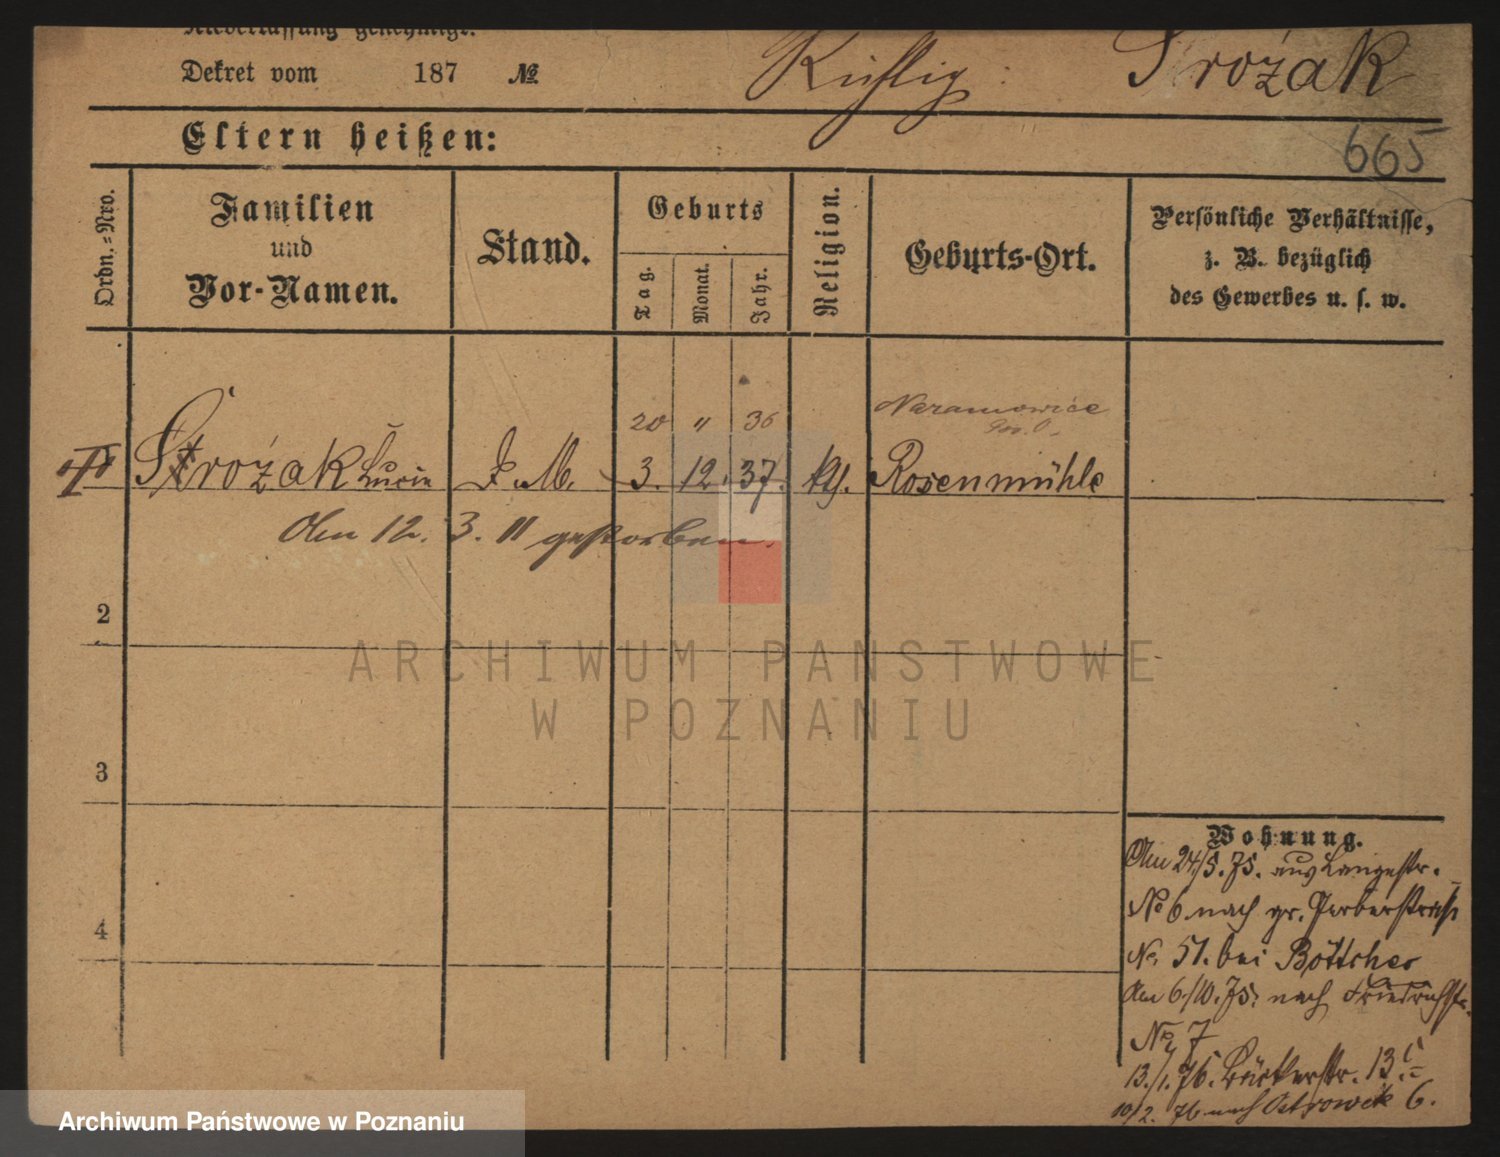 Niederlassung genehmigt.
Dekret vom 187 №
Richtig: Strożak
Eltern heißen:
665
Ordn.=Nro.
Familien
und
Vor-Namen.
Stand.
Geburts
Tag.
Monat.
Jahr.
Religion.
Geburts-Ort.
Persönliche Verhältnisse,
z. B. bezüglich
des Gewerbes u. s. w.
20 " 36 Naramowice
Strożak Lucia D. M. 3. 12. 37. kth. Rosenmühle
Am 12. 3. 11 gestorben.
2
3
4
ARCHIWUM PAŃSTWOWE
W POZNANIU
Wohnung.
Am 24/5. 75. aus Langestr.
No 6 nach gr. Gerberstraße
No. 51. bei Böttcher
Am 6/10. 75. nach Friedrichstr.
No 7
13./1. 76. Bäckerstr. 13
10/2. 76 nach Ostrowek 6.
Archiwum Państwowe w Poznaniu